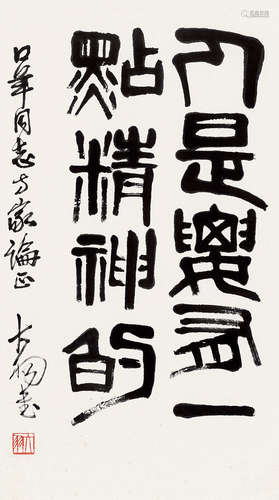 人是要有一
點精神的
日華同志方家論正
大羽書